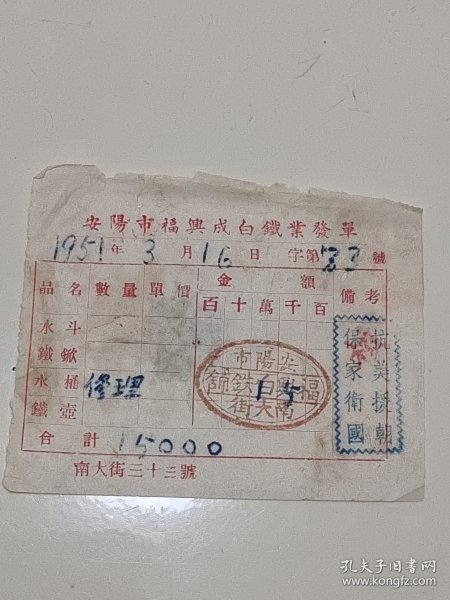 安陽市福興成白鐵業發單
1951年3月16日 字第33號
品名 數量 單價 金額 備考
百十萬千百
水斗
鐵鍁
水桶 修理 15
鐵壺
合計 15000
安陽市
福興白鉄舖
南大街
抗美援朝
保家衛國
南大街三十三號
孔夫子旧书网
www.kongfz.com